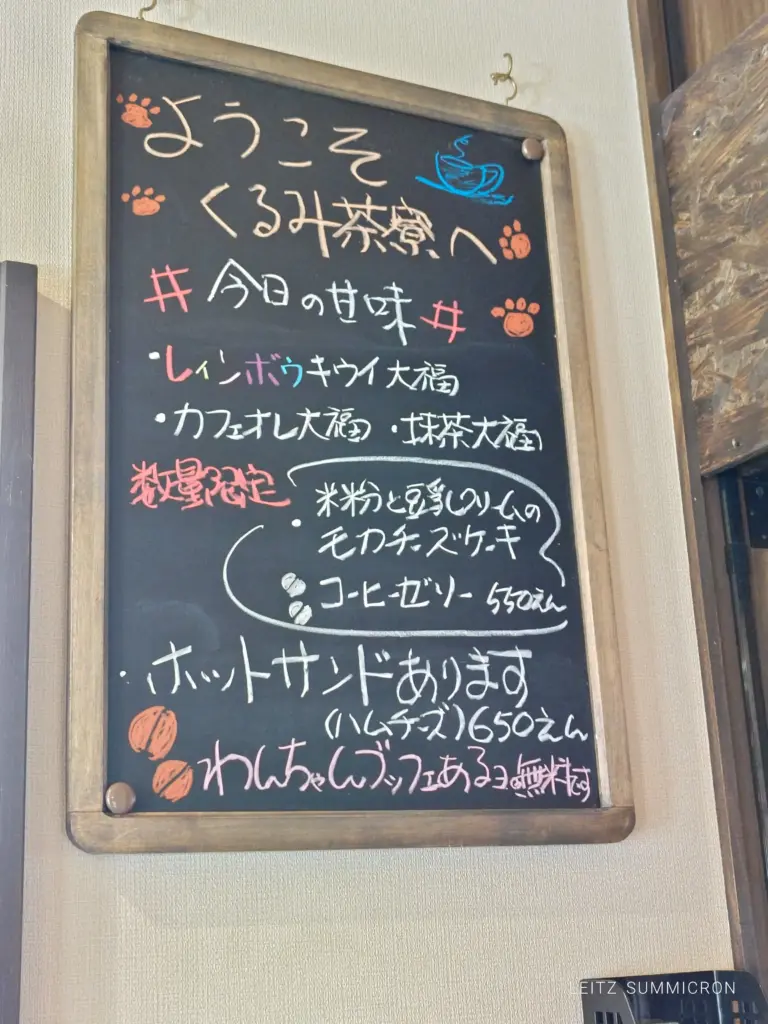 ようこそ
くるみ茶寮へ
# 今日の甘味 #
・レインボウキウイ大福
・カフェオレ大福 ・抹茶大福
数量限定
・米粉と豆乳クリームの
モカチーズケーキ
コーヒーゼリー 550えん
・ホットサンドあります
(ハムチーズ)650えん
わんちゃんブッフェあるヨ無料です
LEITZ SUMMICRON